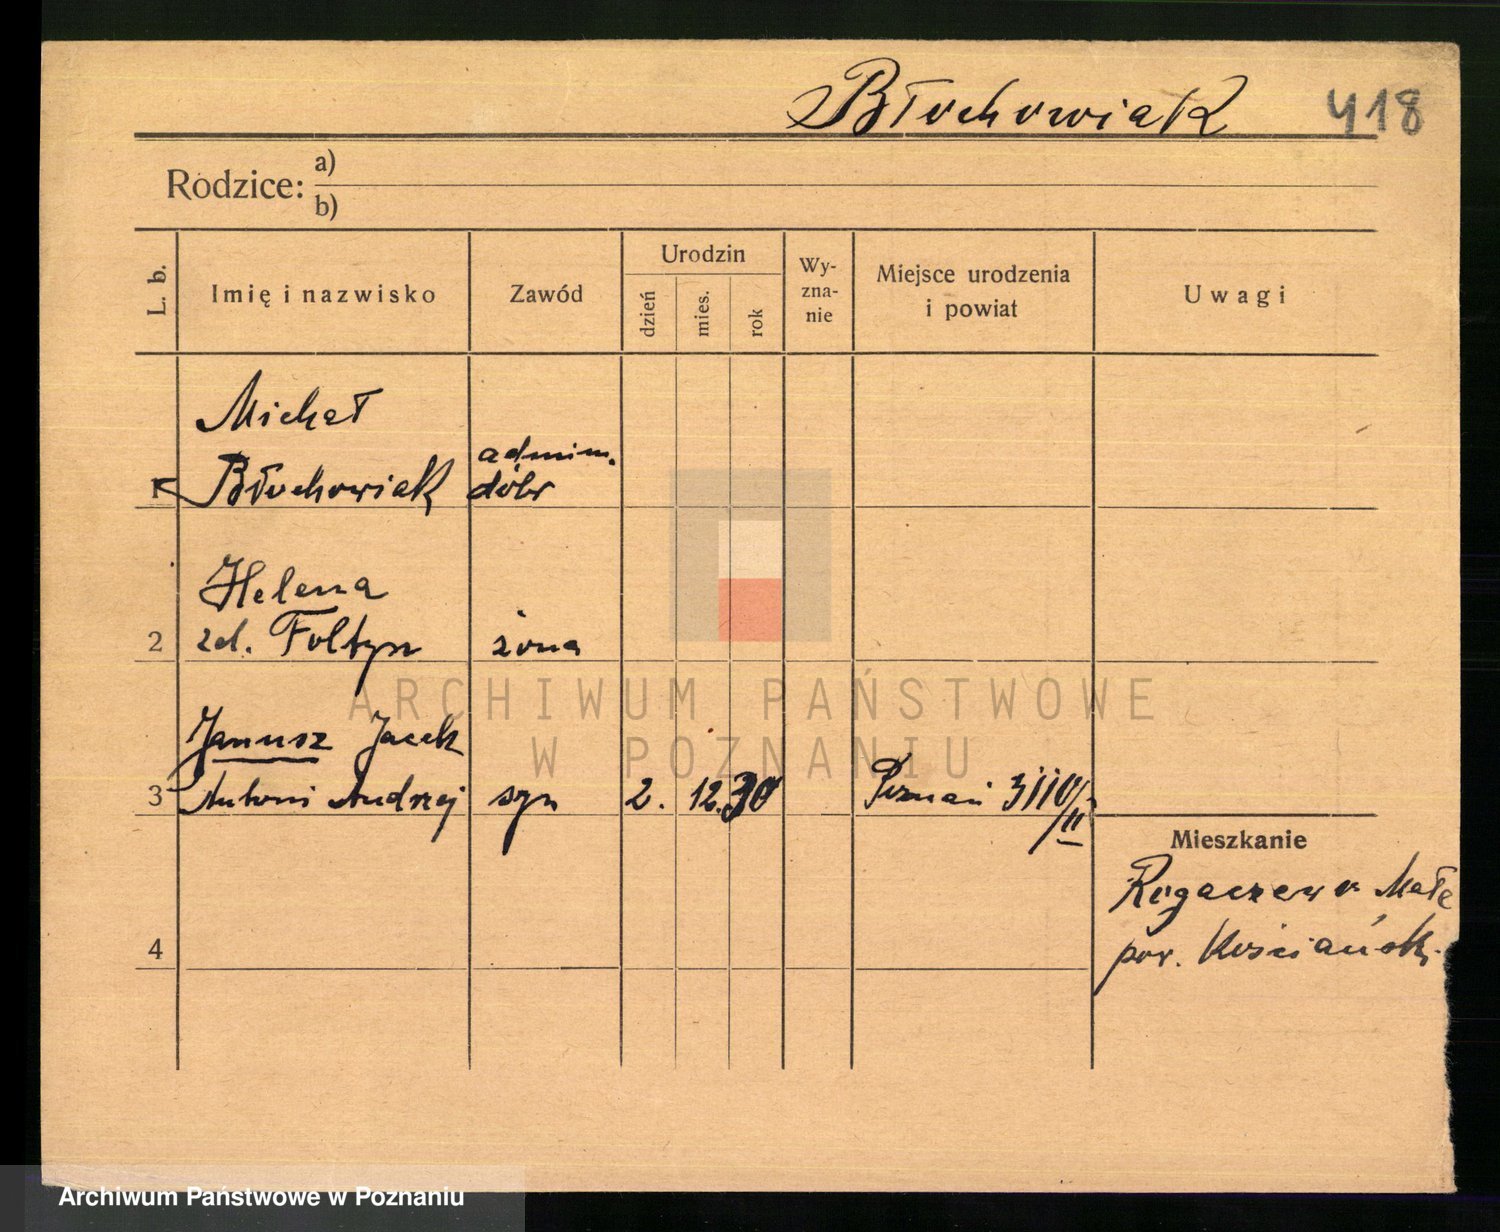 Błochowiak 418
Rodzice: a)
b)
L. b.
Imię i nazwisko
Zawód
Urodzin
dzień
mies.
rok
Wy-
zna-
nie
Miejsce urodzenia
i powiat
Uwagi
Michał
1 Błochowiak
admin.
dóbr
Helena
2 zd. Foltyn żona
Janusz Jacek
3 Antoni Andrzej syn 2. 12. 30 Poznań 3110/
/II
4
Mieszkanie
Rogaczewo Małe
pow. Kościański
ARCHIWUM PAŃSTWOWE
W POZNANIU
Archiwum Państwowe w Poznaniu